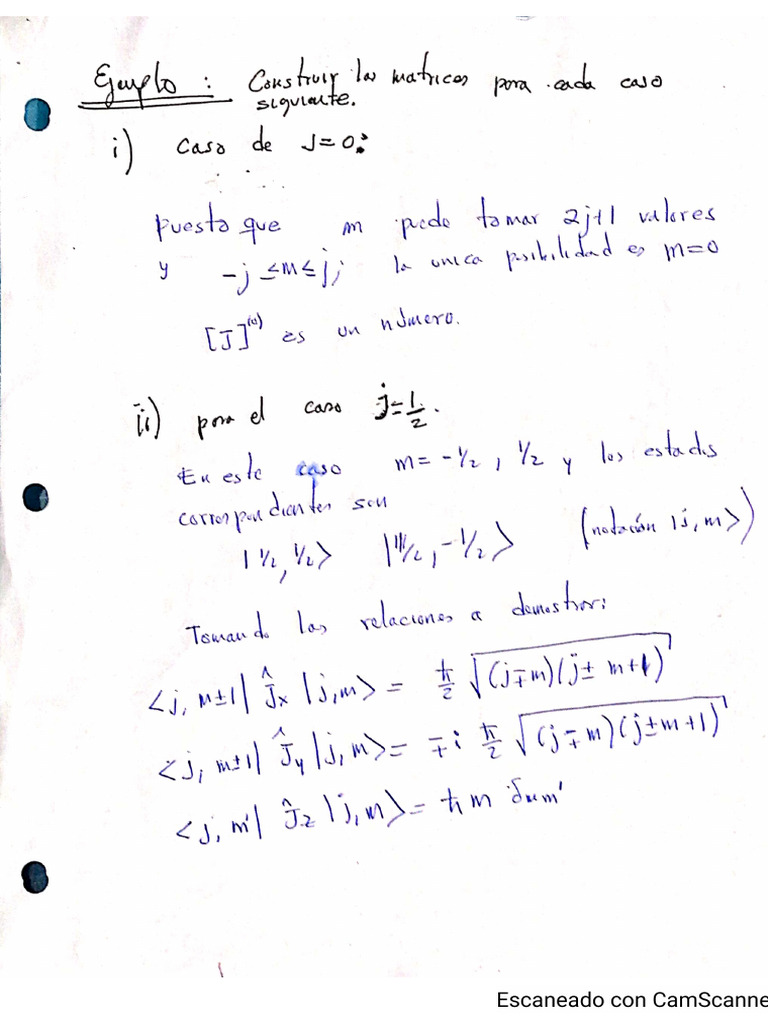 Ejemplo : Construir las matrices para cada caso
siguiente.
i) caso de J=0:
Puesto que m puede tomar 2j+1 valores
y -j ≤m≤ j; la unica posibilidad es m=0
[J]⁽⁰⁾ es un número.
ii) para el caso j=1/2.
En este caso m= -1/2, 1/2 y los estados
correspondientes son
|1/2, 1/2> |1/2, -1/2> (notación |j, m>)
Tomando las relaciones a demostrar:
<j, m±1| Ĵx |j,m> = ħ/2 √(j∓m)(j± m+1)
<j, m±1| Ĵy |j,m> = ∓i ħ/2 √(j∓m)(j±m+1)
<j, m'| Ĵz |j,m> = ħ m δmm'
Escaneado con CamScanne